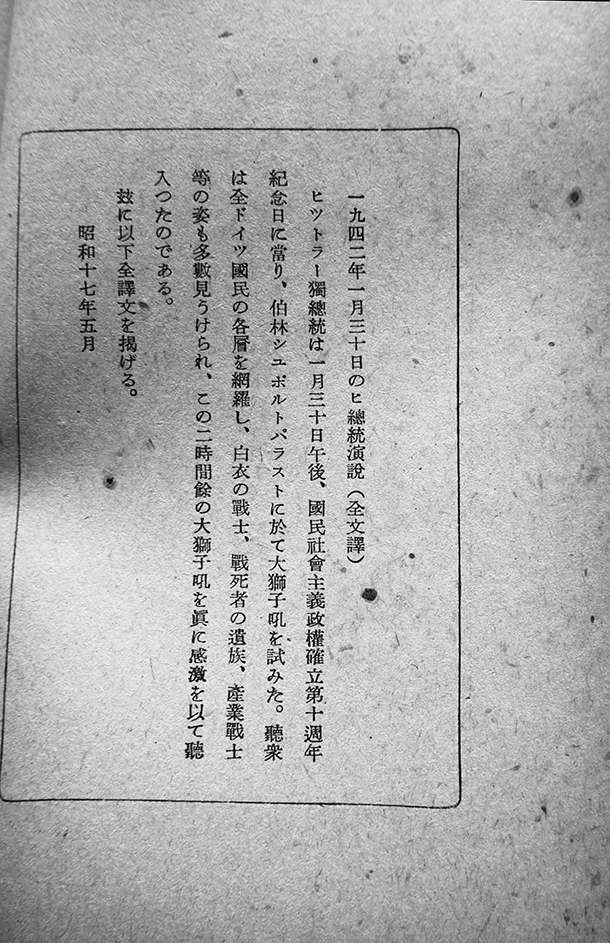 一九四二年一月三十日のヒ總統演說（全文譯）
ヒツトラー獨總統は一月三十日午後、國民社會主義政權確立第十週年
紀念日に當り、伯林シユポルトパラストに於て大獅子吼を試みた。聽衆
は全ドイツ國民の各層を網羅し、白衣の戰士、戰死者の遺族、產業戰士
等の姿も多數見うけられ、この二時間餘の大獅子吼を眞に感激を以て聽
入つたのである。
玆に以下全譯文を揭げる。
昭和十七年五月